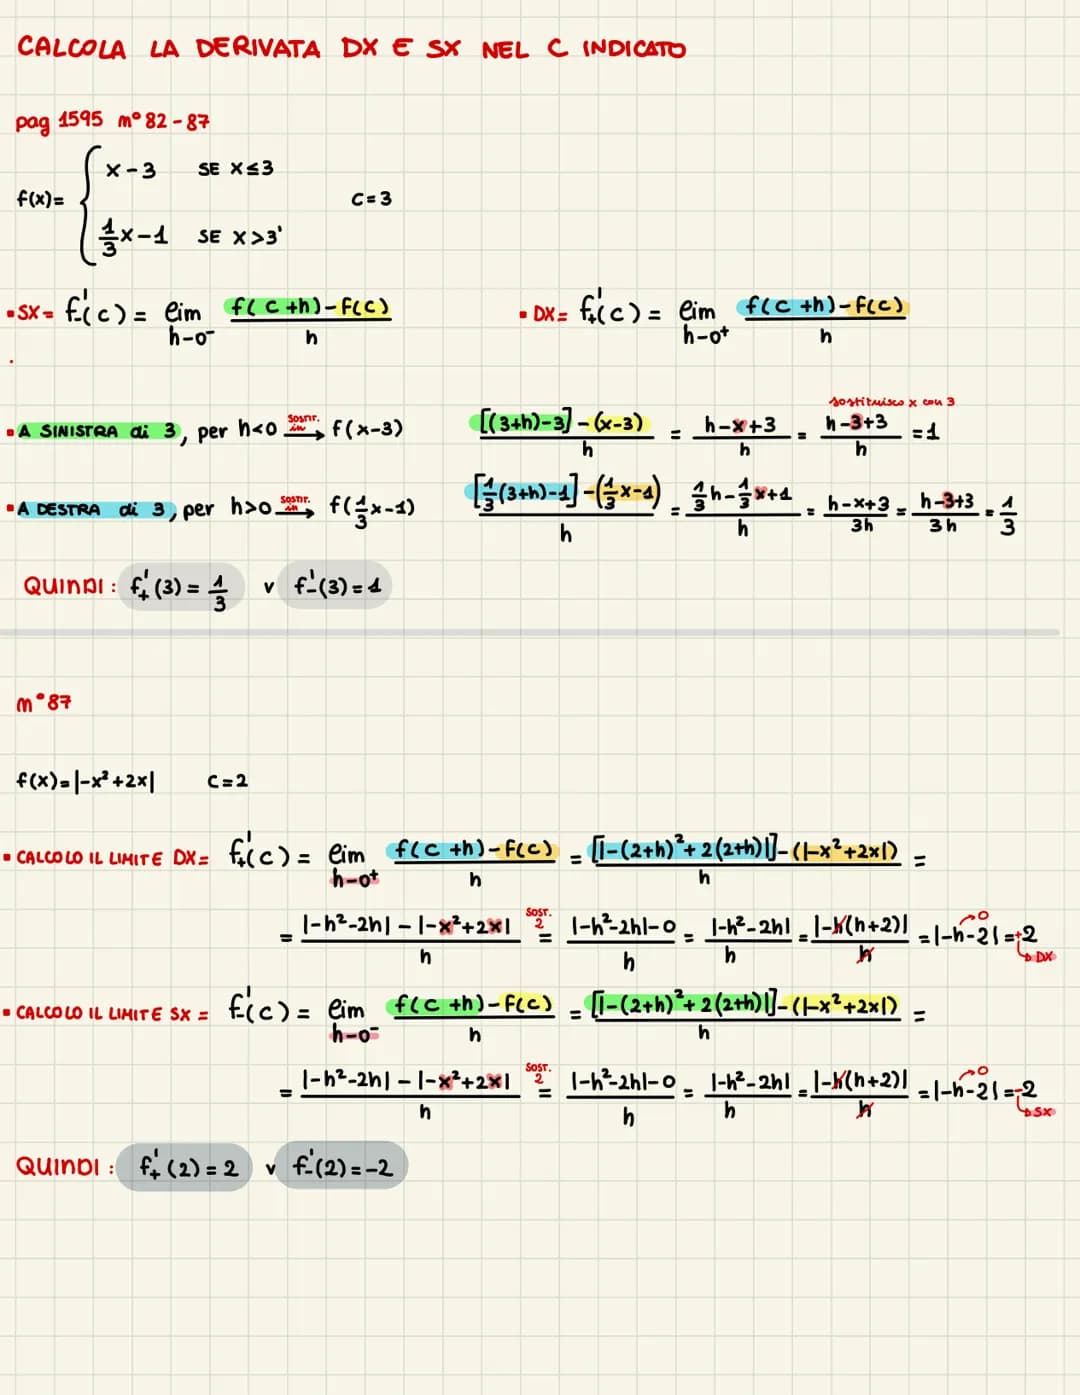 CALCOLA LA DERIVATA DX E SX NEL C INDICATO
pag 1595 m° 82 - 87
f(x)= { x - 3 SE X≤3
1/3x-1 SE X>3'
C=3
• SX= f'₋(c) = lim h-0⁻ f(c+h)-f(c) / h
• DX= f'₊(c) = lim h-0⁺ f(c+h)-f(c) / h
• A SINISTRA di 3, per h<0 sostit. in → f(x-3) [(3+h)-3]-(x-3) / h = h-x+3 / h = h-3+3 / h = 1
sostituisco x con 3
• A DESTRA di 3, per h>0 sostit. in → f(1/3x-1) [1/3(3+h)-1]-(1/3x-1) / h = 1/3h-1/3x+1 / h = h-x+3 / 3h = h-3+3 / 3h = 1/3
QUINDI: f'₊(3) = 1/3 v f'₋(3) = 1
m° 87
f(x)=|-x²+2x| C=2
• CALCOLO IL LIMITE DX= f'₊(c) = lim h-0⁺ f(c+h)-f(c) / h = [|-(2+h)²+2(2+h)|]-(|-x²+2x|) / h =
= |-h²-2h| - |-x²+2x| / h SOST. 2 = |-h²-2h|-0 / h = |-h²-2h| / h = |-h(h+2)| / h = |-h-2| = +2
0
DX
• CALCOLO IL LIMITE SX = f'₋(c) = lim h-0⁻ f(c+h)-f(c) / h = [|-(2+h)²+2(2+h)|]-(|-x²+2x|) / h =
= |-h²-2h| - |-x²+2x| / h SOST. 2 = |-h²-2h|-0 / h = |-h²-2h| / h = |-h(h+2)| / h = |-h-2| = -2
0
SX
QUINDI: f'₊(2) = 2 v f'₋(2) = -2